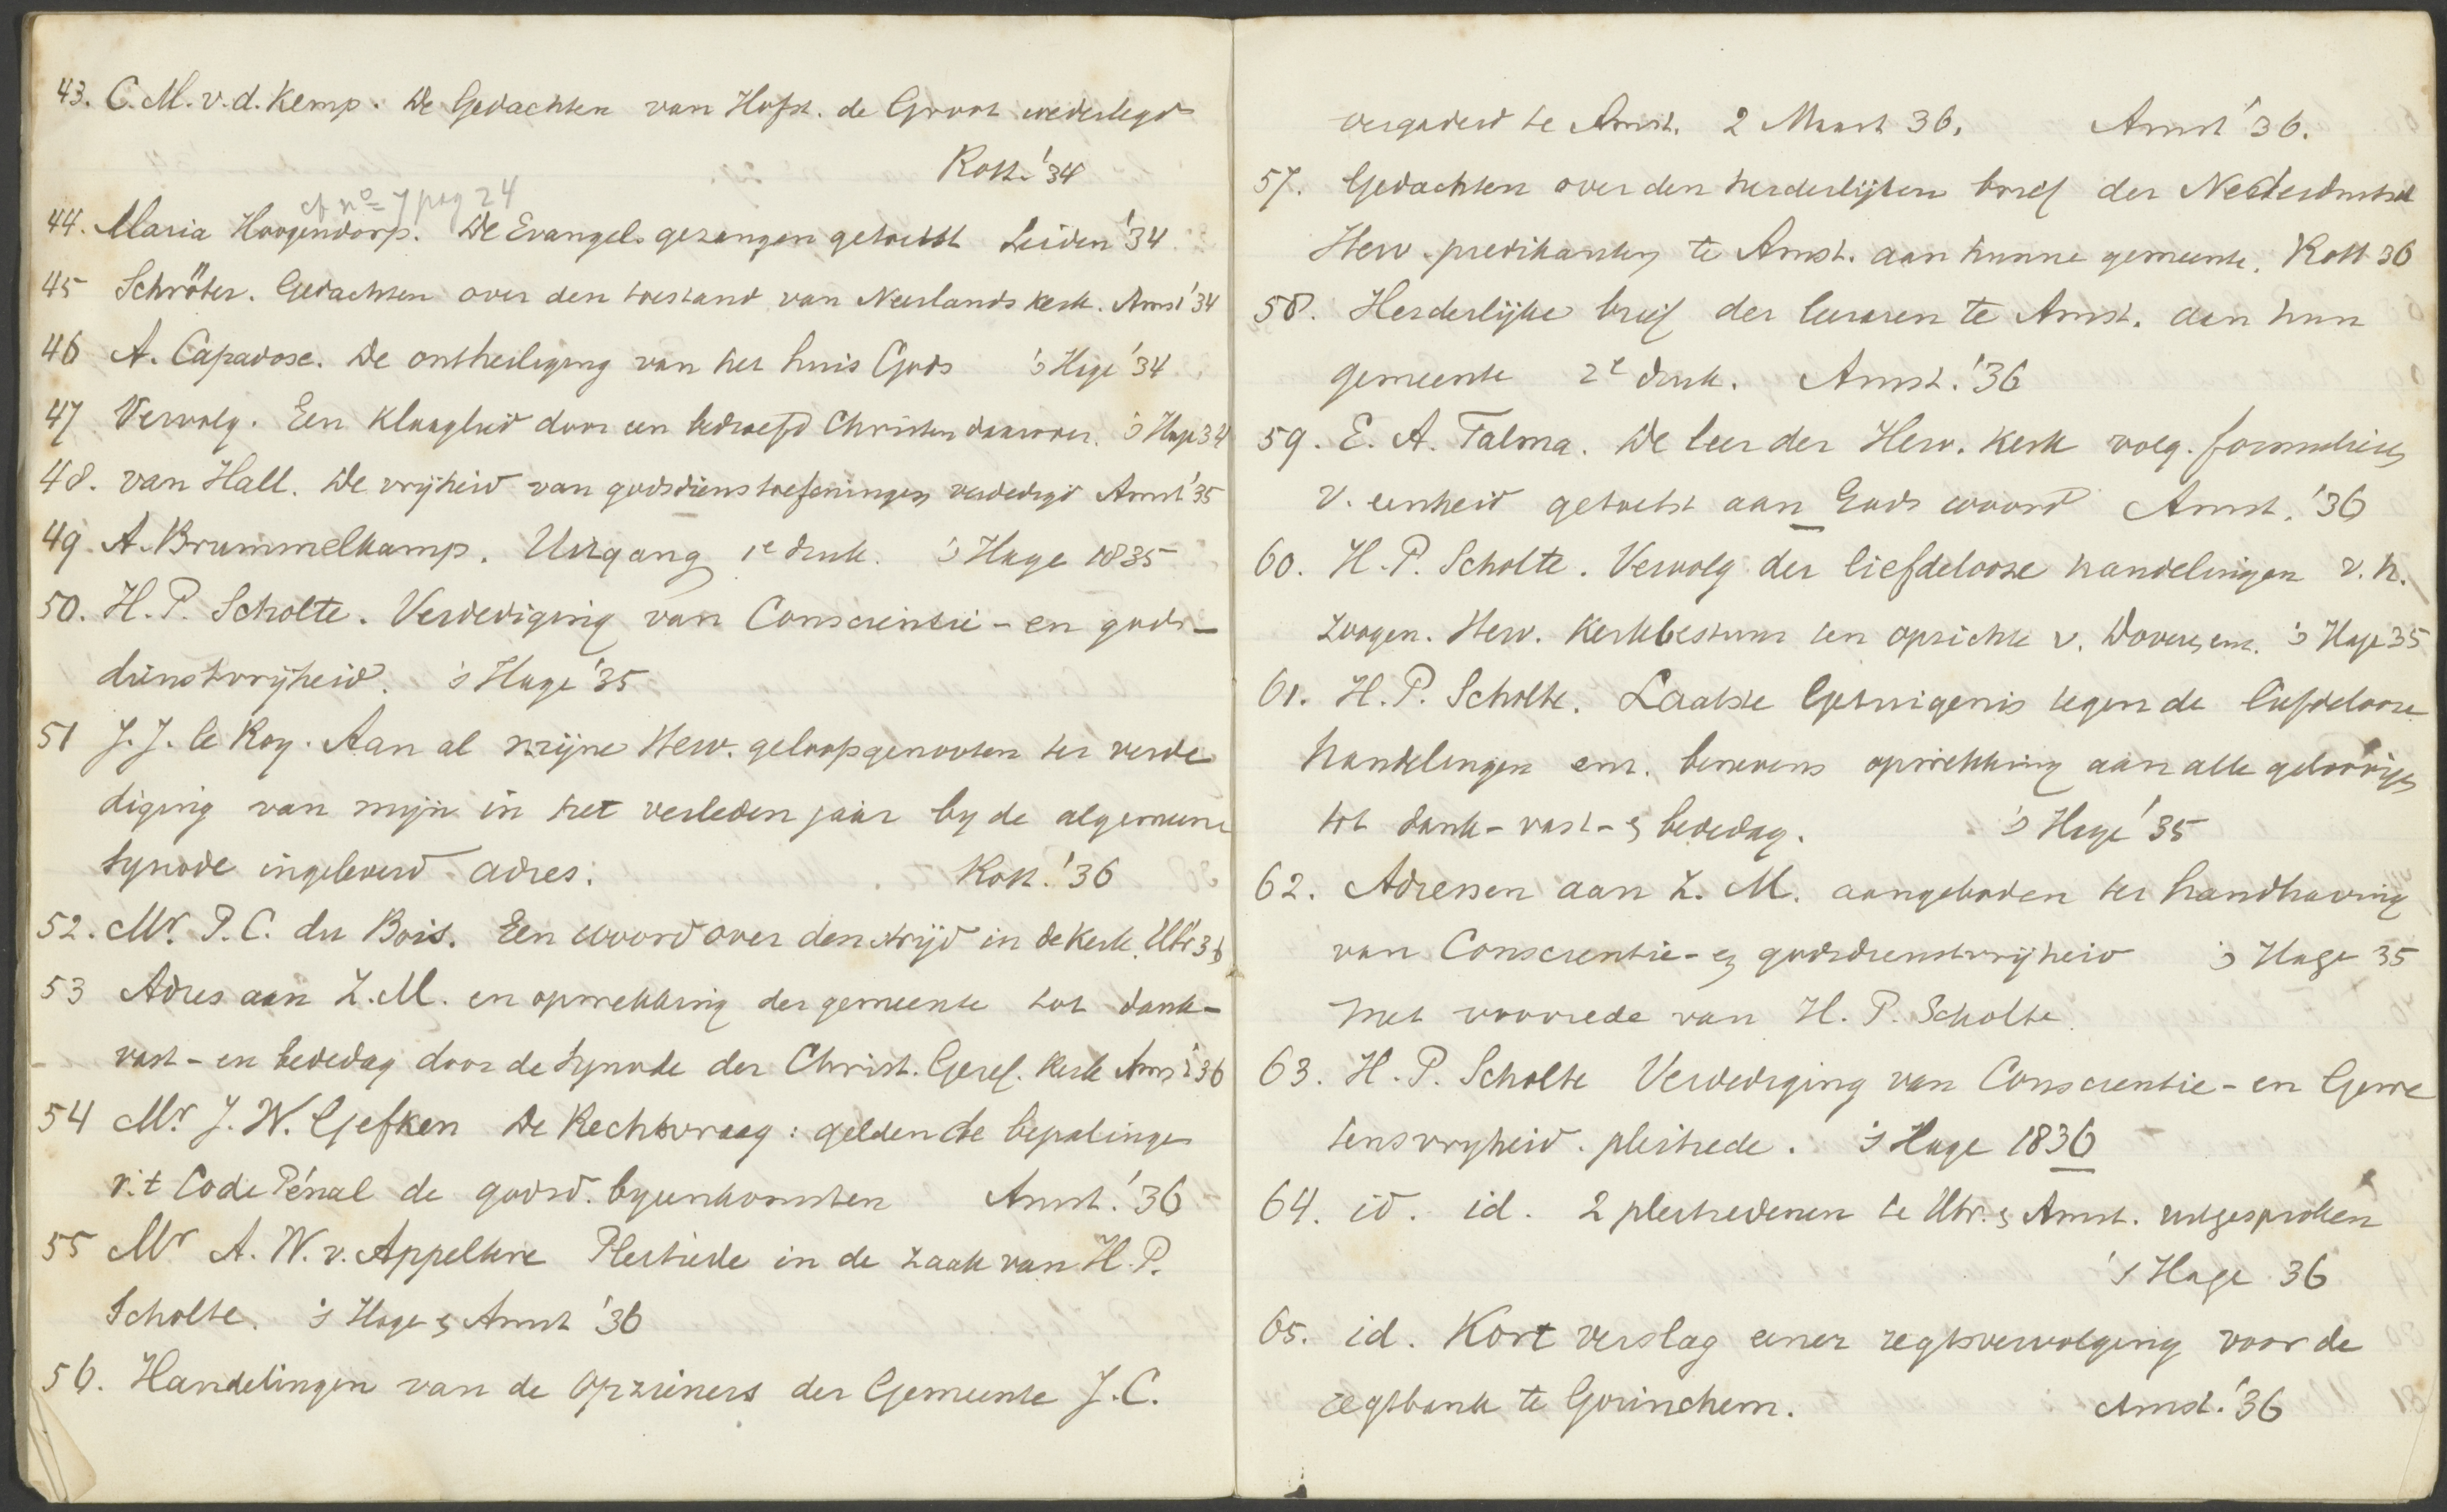 43. C. M. v. d. Kemp. De Gedachten van Hofst. de Groot wederlegd
Rott. '34
cf no 7 pag 24
44. Maria Hoogendorp. De Evangel. gezangen getoetst Leiden '34
45 Schröter. Gedachten over den toestand van Neerlands kerk. Amst '34
46 A. Capadose. De ontheiliging van het huis Gods 's Hage '34
47 Vervolg. Een klaaglied door een bedroefd Christen daarover. 's Hage 34
48. van Hall. De vrijheid van godsdienstoefeningen verdedigd Amst '35
49. A. Brummelkamp. Uitgang 1e druk. 's Hage 1835
50. H. P. Scholte. Verdediging van Conscientie- en gods-
dienstvrijheid. 's Hage '35
51 J. J. le Roy. Aan al mijne Herv. geloofsgenooten ter verde
diging van mijn in het verleden jaar by de algemeene
synode ingeleverd adres. Rott. '36
52. Mr. P. C. du Bois. Een woord over den strijd in de kerk. Utr 36
53 Adres aan Z. M. en opwekking der gemeente tot dank-
vast- en bededag door de synode der Christ. Geref. Kerk Amst '36
54 Mr J. W. Gefken De Rechtsvraag: gelden de bepalingen
v. t Code Pénal de godsd. byeenkomsten Amst. '36
55 Mr A. W. v. Appeltere Pleitrede in de zaak van H. P.
Scholte. 's Hage & Amst '36
56. Handelingen van de Opzieners der Gemeente J. C.
vergaderd te Amst. 2 Maart 36. Amst '36.
57. Gedachten over den herderlijken brief der Nederduitsch
Herv. predikanten te Amst. aan hunne gemeente. Rott 36
58. Herderlijke brief der leeraren te Amst. aan hun
gemeente 2e druk. Amst. '36
59. E. A. Talma. De leer der Herv. kerk volg. formulieren
v. eenheid getoetst aan Gods woord Amst. '36
60. H. P. Scholte. Vervolg der liefdelooze handelingen v. h.
zoogen. Herv. Kerkbestuur ten opzichte v. Doveren enz. 's Hage 35
61. H. P. Scholte. Laatste Getuigenis tegen de liefdelooze
handelingen enz. benevens opwekking aan alle geloovigen
tot dank- vast- & bededag. 's Hage '35
62. Adressen aan Z. M. aangeboden ter handhaving
van Conscientie- en godsdienstvrijheid 's Hage 35
met voorrede van H. P. Scholte.
63. H. P. Scholte Verdediging van Conscientie- en Gewe
tensvryheid. pleitrede. 's Hage 1836
64. id. id. 2 pleitredenen te Utr. & Amst. uitgesproken
's Hage 36
65. id. Kort verslag eener regtsvervolging voor de
regtbank te Gorinchem. Amst. '36